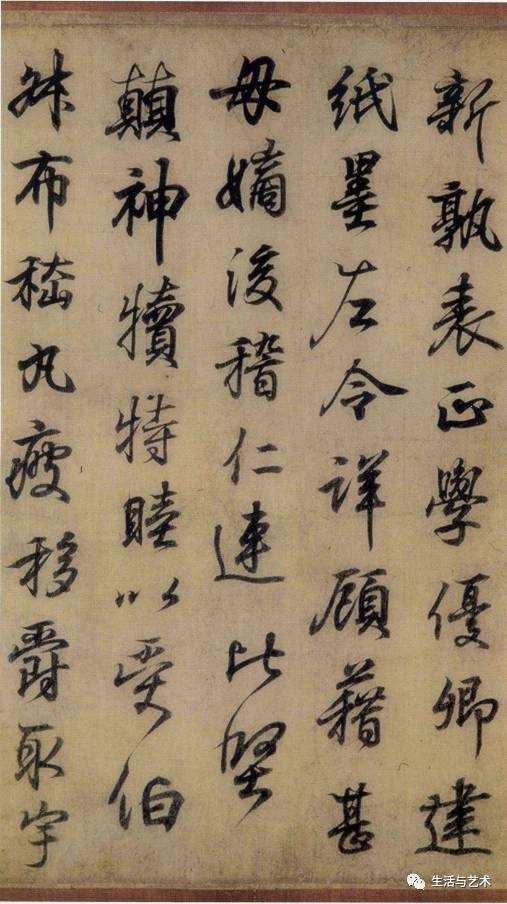 新孰表正學優卿建
紙墨左令詳顧藉甚
母嫡後稽仁連比堅
顛神犢特睦以受伯
布嵇丸疲移爵取宇
生活与艺术